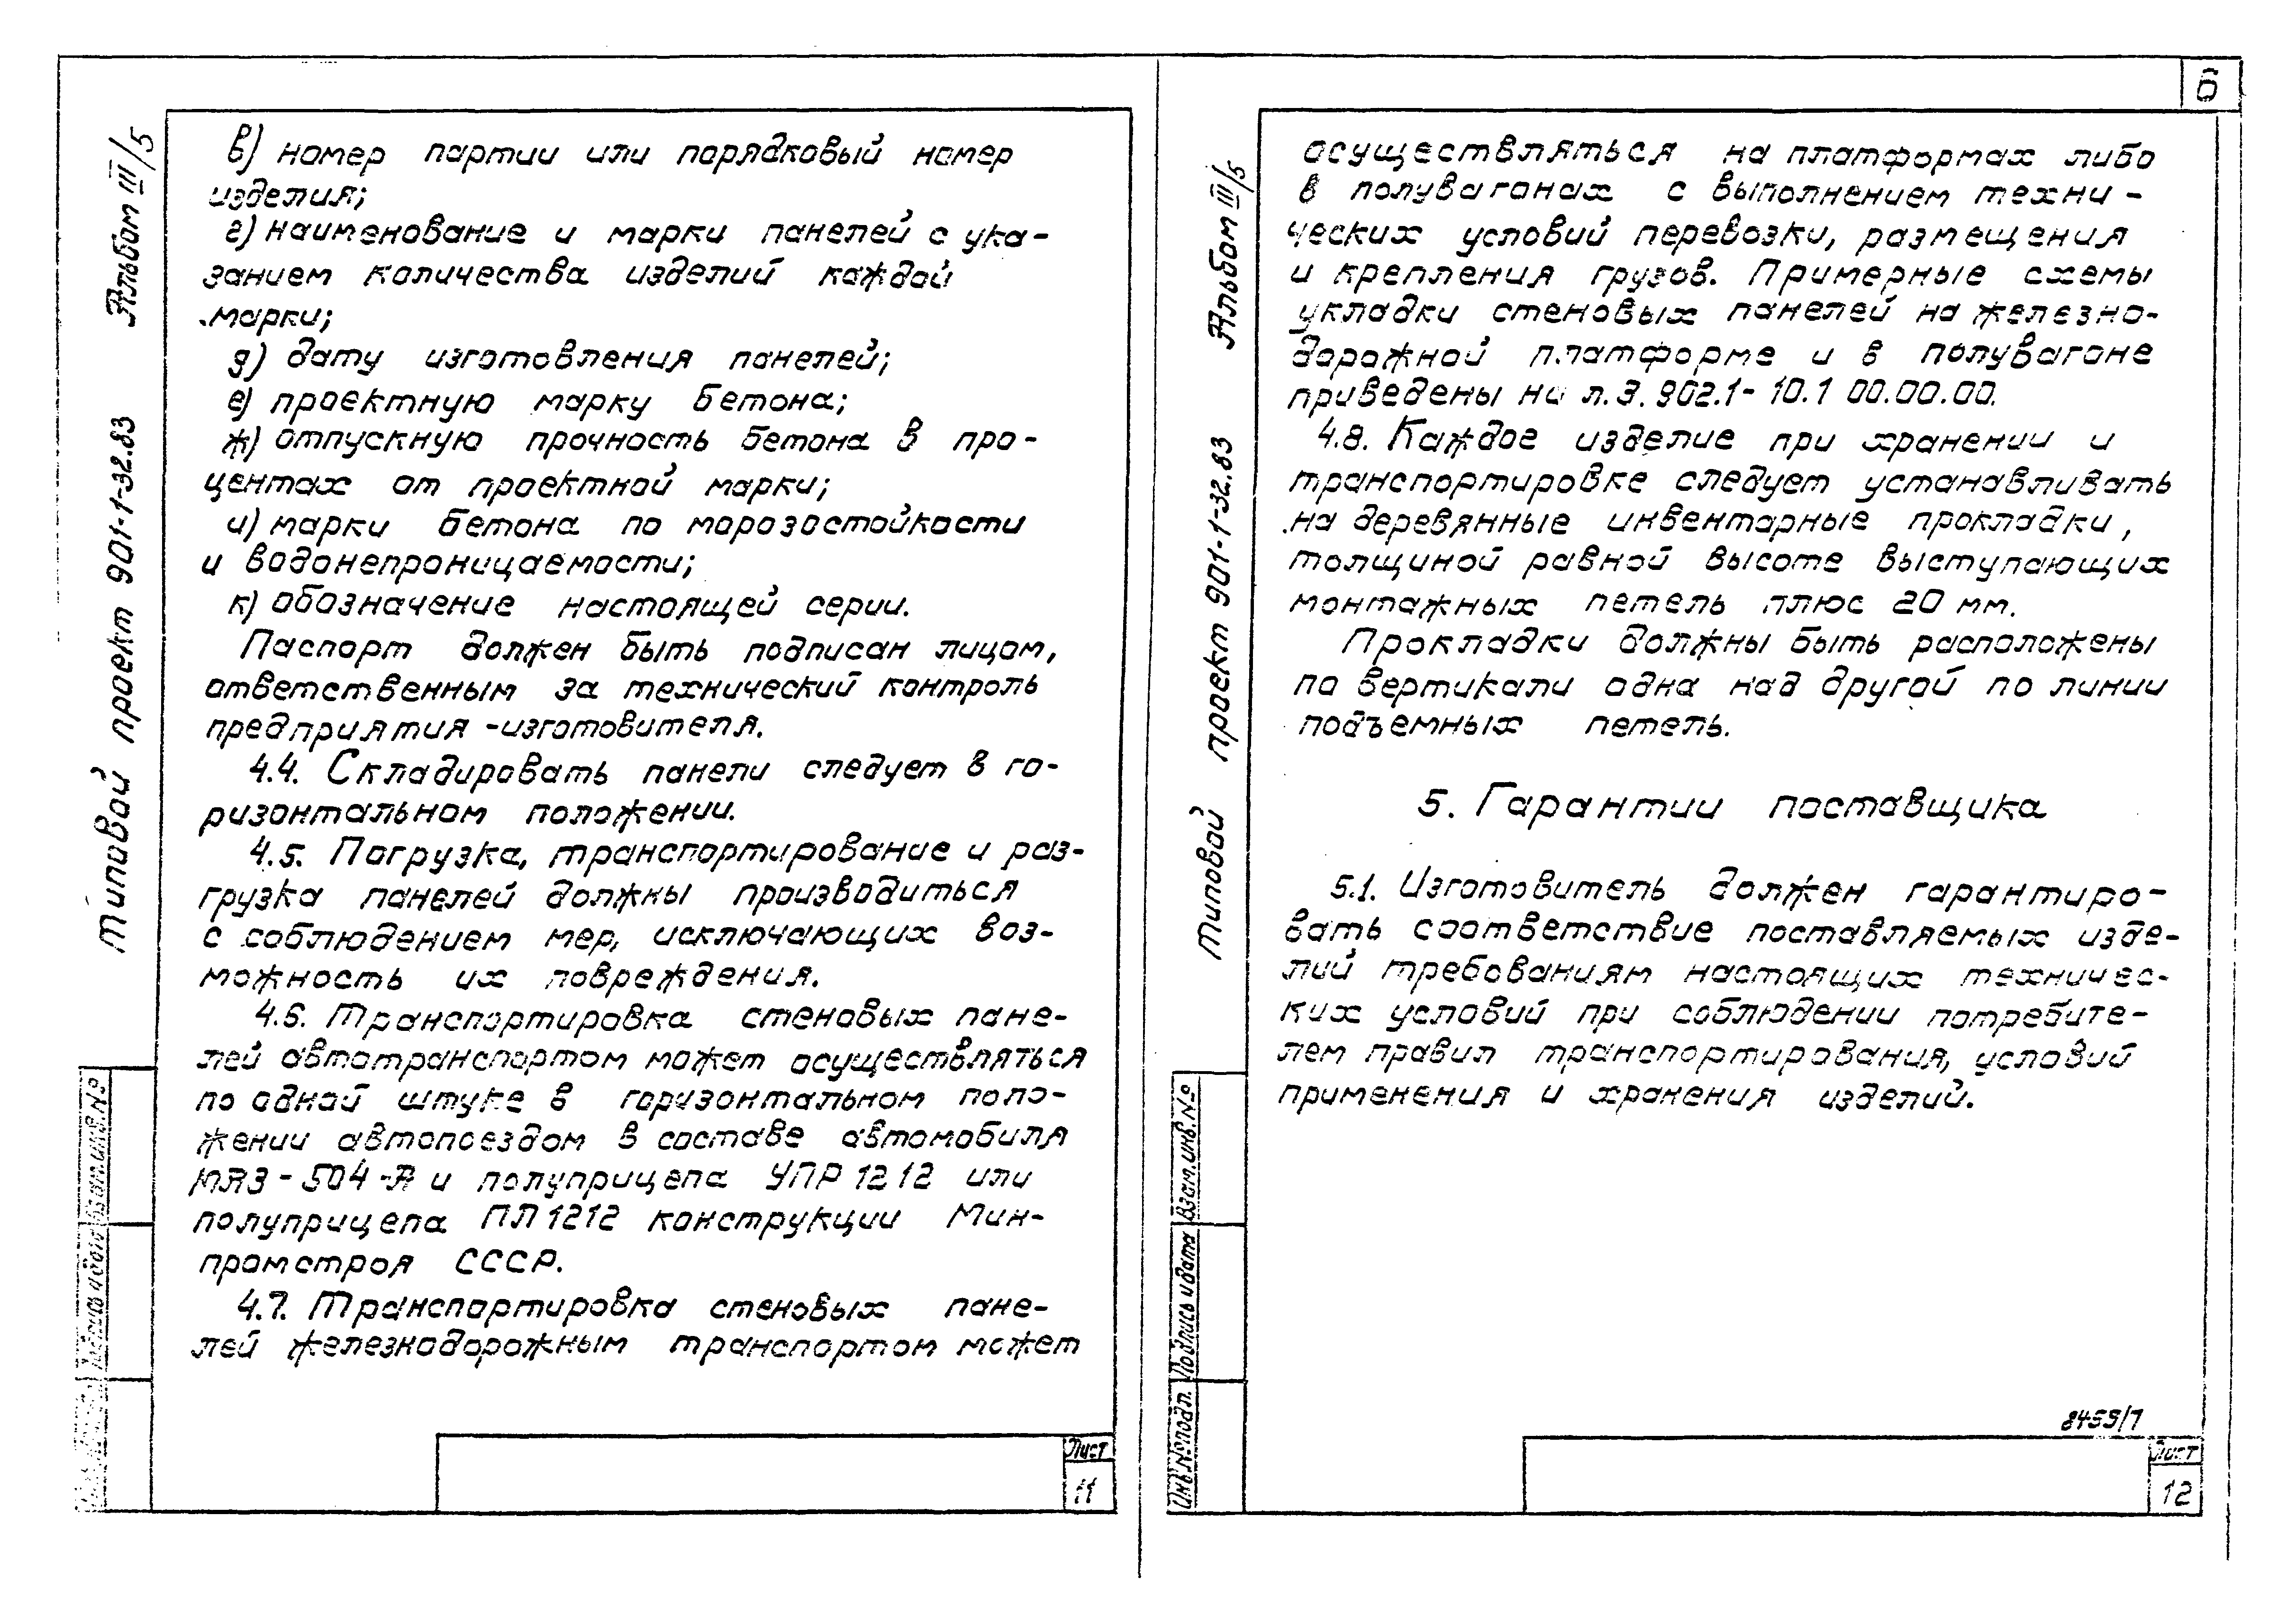 6
Альбом III/5
Типовой проект 901-1-32.83
в) номер партии или порядковый номер
изделия;
г) наименование и марки панелей с ука-
занием количества изделий каждой
марки;
д) дату изготовления панелей;
е) проектную марку бетона;
ж) отпускную прочность бетона в про-
центах от проектной марки;
и) марки бетона по морозостойкости
и водонепроницаемости;
к) обозначение настоящей серии.
Паспорт должен быть подписан лицом,
ответственным за технический контроль
предприятия-изготовителя.
4.4. Складировать панели следует в го-
ризонтальном положении.
4.5. Погрузка, транспортирование и раз-
грузка панелей должны производиться
с соблюдением мер, исключающих воз-
можность их повреждения.
4.6. Транспортировка стеновых пане-
лей автотранспортом может осуществляться
по одной штуке в горизонтальном поло-
жении автопоездом в составе автомобиля
МАЗ-504-А и полуприцепа УПР 1212 или
полуприцепа ПЛ1212 конструкции Мин-
промстроя СССР.
4.7. Транспортировка стеновых пане-
лей железнодорожным транспортом может
Взам.инв.№
Лист
11
Альбом III/5
Типовой проект 901-1-32.83
осуществляться на платформах либо
в полувагонах с выполнением техни-
ческих условий перевозки, размещения
и крепления грузов. Примерные схемы
укладки стеновых панелей на железно-
дорожной платформе и в полувагоне
приведены на л. 3.902.1-10.1 00.00.00.
4.8. Каждое изделие при хранении и
транспортировке следует устанавливать
на деревянные инвентарные прокладки,
толщиной равной высоте выступающих
монтажных петель плюс 20 мм.
Прокладки должны быть расположены
по вертикали одна над другой по линии
подъемных петель.
5. Гарантии поставщика
5.1. Изготовитель должен гарантиро-
вать соответствие поставляемых изде-
лий требованиям настоящих техничес-
ких условий при соблюдении потребите-
лем правил транспортирования, условий
применения и хранения изделий.
Взам.инв.№
Подпись и дата
Инв.№подл.
8455/7
Лист
12